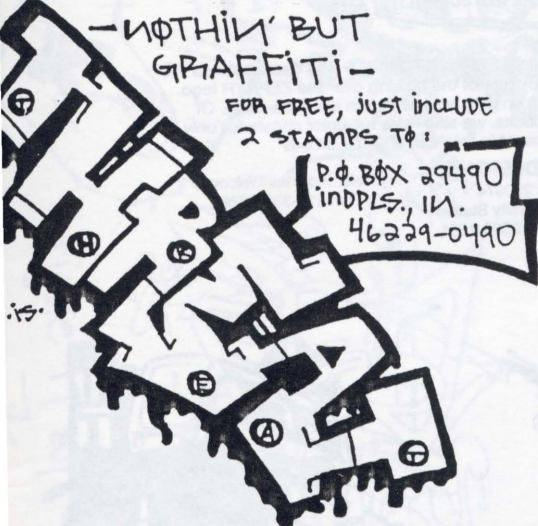 -NØTHiN' BUT
GRAFFiTi-
FOR FREE, JUST INCLUDE
2 STAMPS TØ:
P.Ø. BØX 29490
INDPLS., IN.
46229-0490
.is.
T
H
R
E
A
T